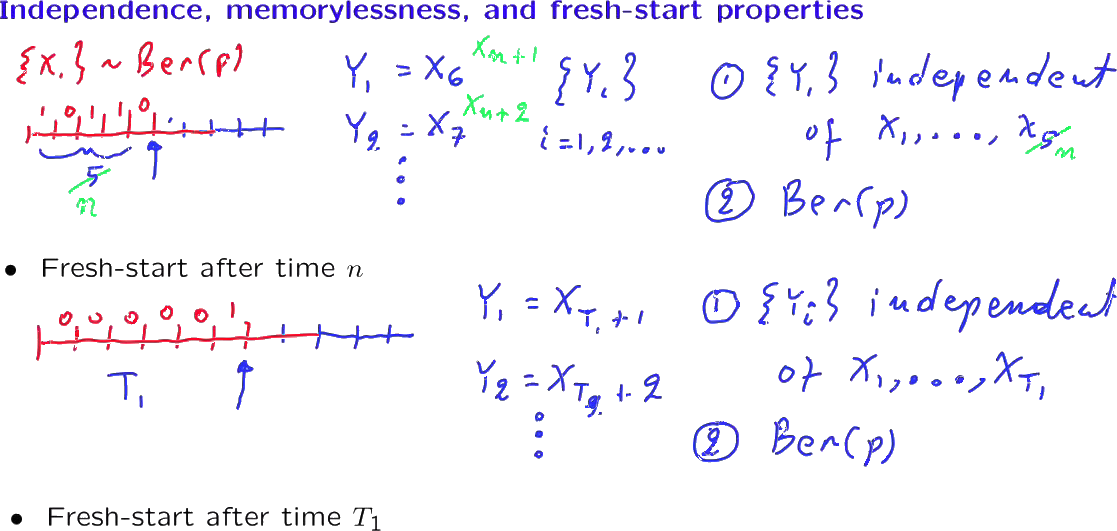 Independence, memorylessness, and fresh-start properties
{X.} ~ Ber(p)
1 0 1 1 0
5
n
Y1 = X6 Xn+1
Y2 = X7 Xn+2
{Yi}
i=1,2,...
① {Yi} independent
of X1,...,X5 n
② Ber(p)
• Fresh-start after time n
0 0 0 0 0 1
T1
Y1 = XT1+1
Y2 = XT2+2
① {Yi} independent
of X1,...,XT1
② Ber(p)
• Fresh-start after time T1